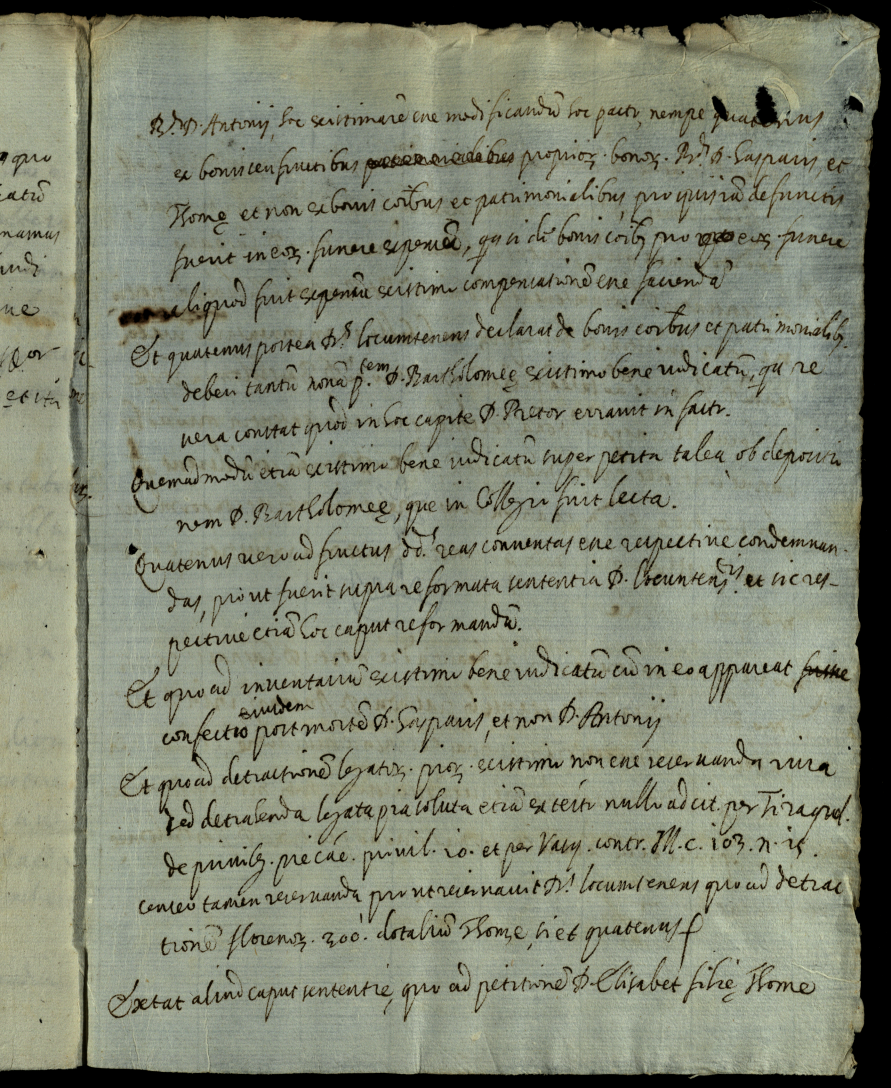 R.di D. Antonij, hoc existimarē ēne modificandū hoc pacto, nempe quatenus
ex bonis censuitibus propioꝝ. bonoꝝ. R.di D. Gasparis, et
Thomę et non ex bonis cōibus et patrimonialibus pro quisitū defunctis
fuerit in eoꝝ. funere expensū, q̃ si de bonis cōibꝫ pro eoꝝ funere
aliquod fuit expensū existimo compensationē ēne faciendā
Et quatenus postea D.s locumtenens declarat de bonis cōibus et patrimonialibꝫ.
deberi tantū nonā p.tem D. Bartholomeę existimo bene iudicatū, quia re
vera constat quòd in hoc capite D. Pretor erravit in facto.
Quemadmodū etiā existimo bene iudicatū super petita talea ob depositio
nem D. Bartholomeę, que in Collegio fuit lecta.
Quatenus vero ad fructus d.das reas conventas ēne respective condemnan-
das, pro ut fuerit supra reformata sententia D. Locuntens.tis et sic res-
pective etiā hoc caput reformandū.
Et quo ad inventariū existimo bene iudicatū cū in eo appareat
confectio eiusdem post mortē D. Gasparis, et non D. Antonij
Et quo ad detractionē legatoꝝ. pioꝝ. existimo non ēne reservanda iura
sed detrahenda legata pia soluta etiā ex testō nullo ad cit. per Tiraquel.
de privileg. pię cāe. privil. 10. et per Vasq. contr. Ill. c. 103. n. 15.
censeo tamen reservanda pro ut reservavit D.s locumtenens quo ad detrac
tionē florenoꝝ. 300. dotaliū Thomę, si et quatenus
Extat aliud caput sententię, quo ad petitionē D. Elisabet filię Thome